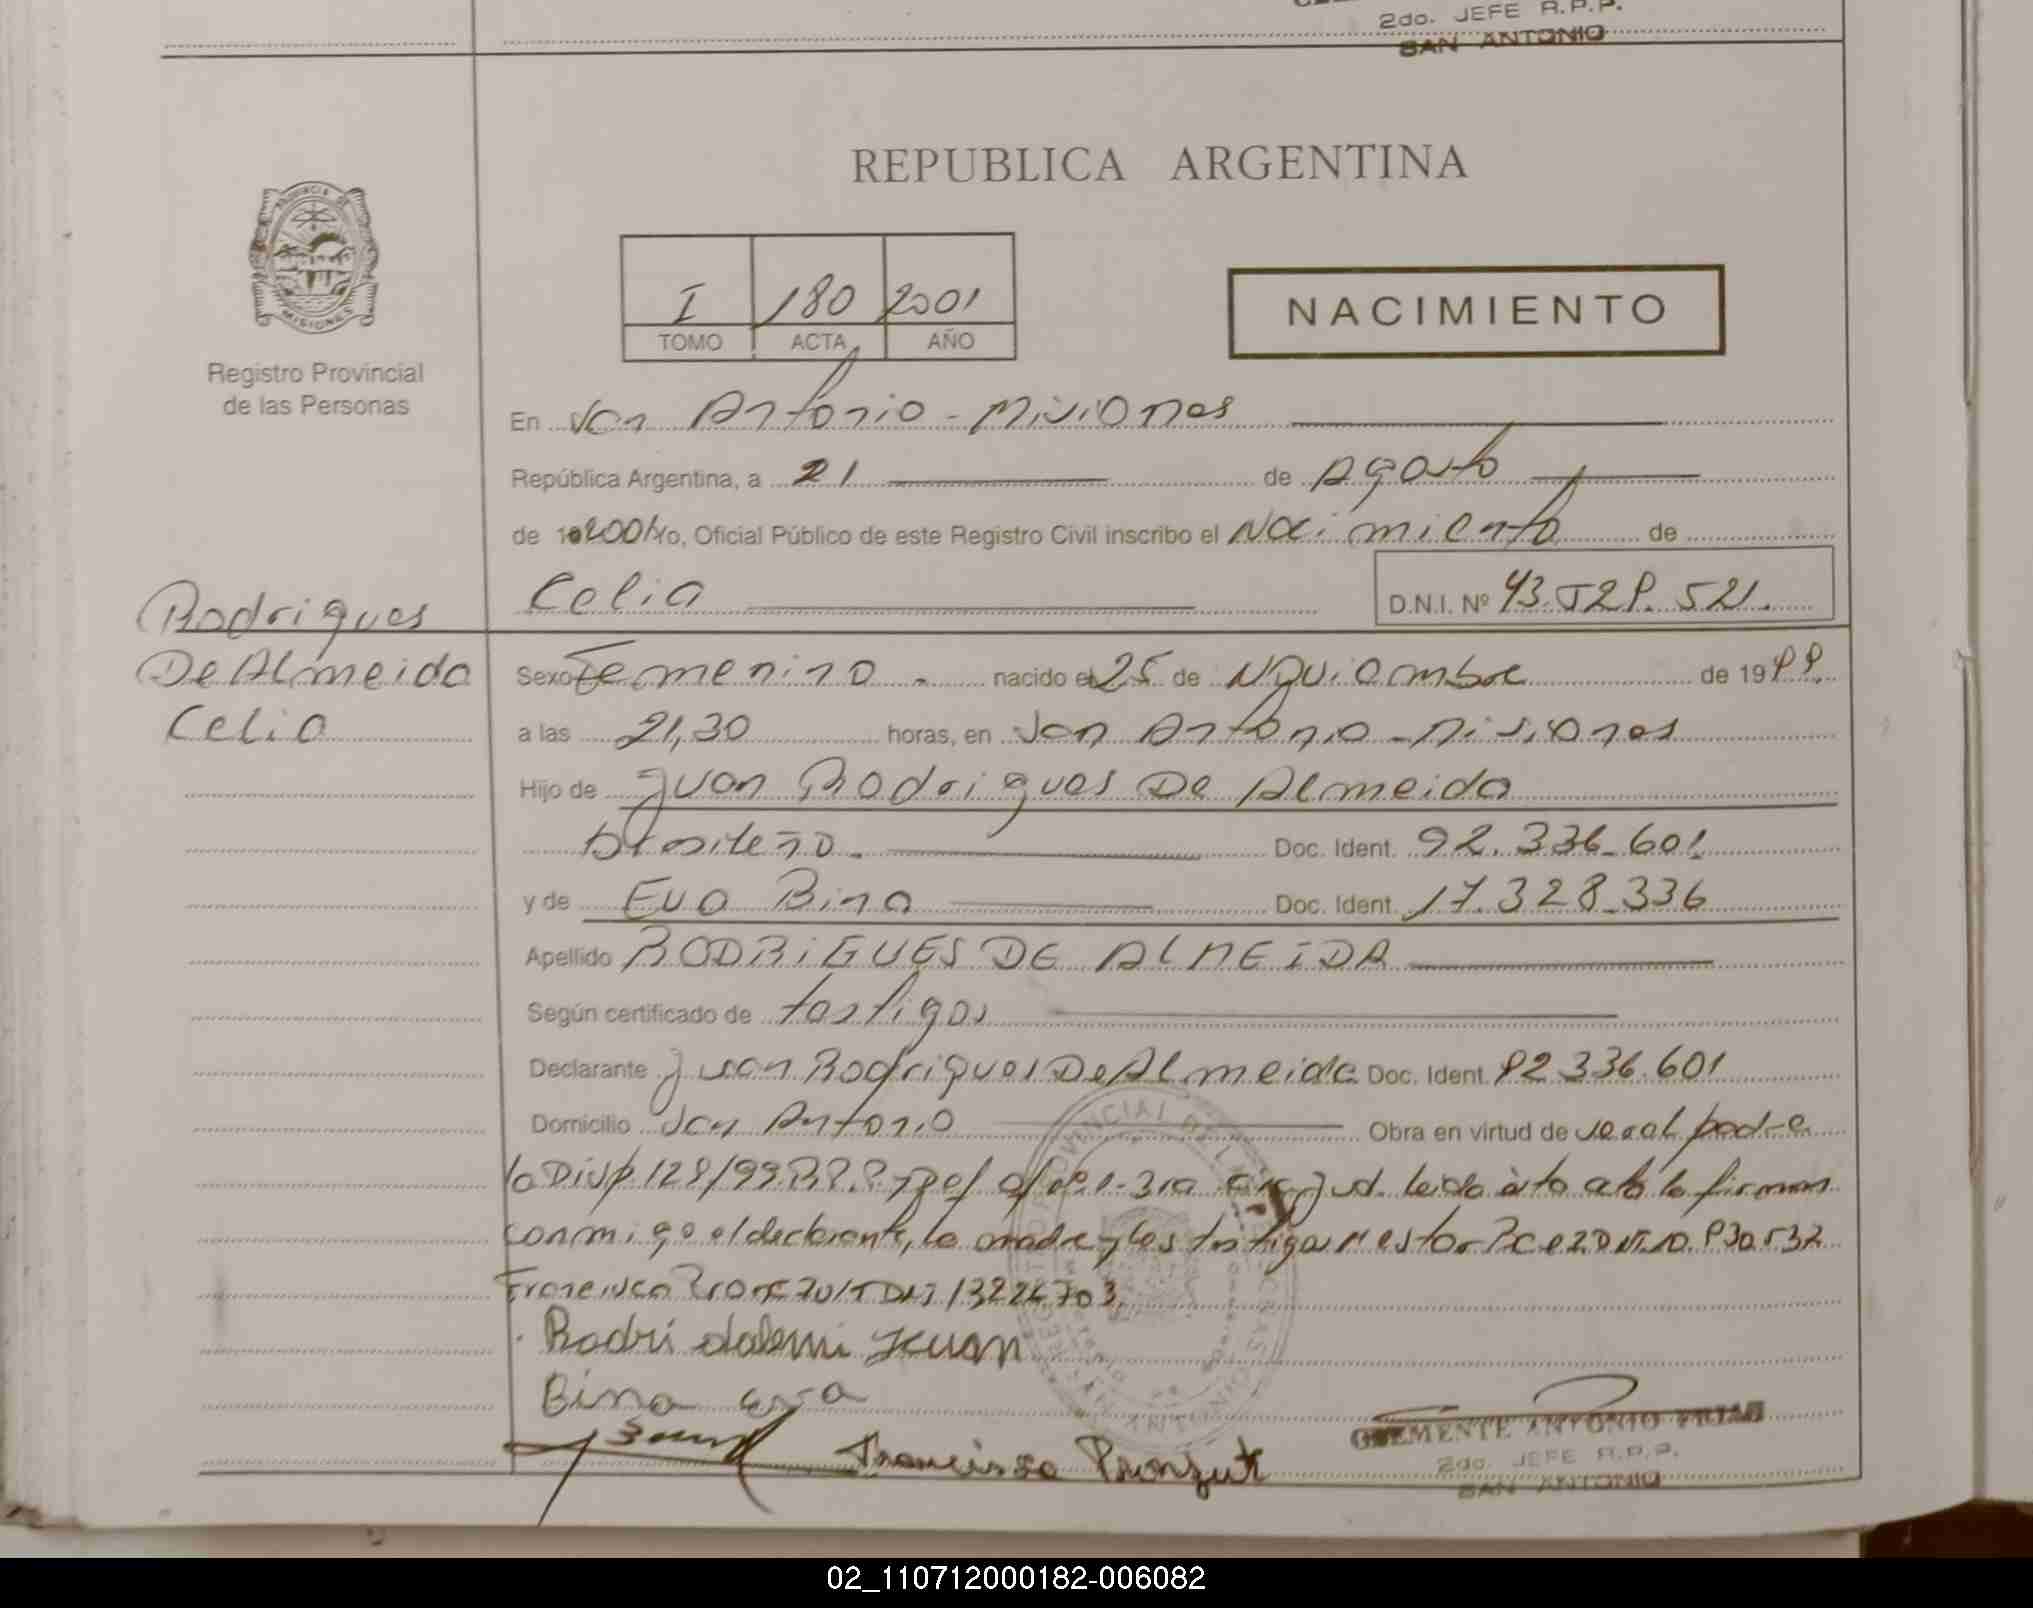 2do. JEFE R.P.P.
SAN ANTONIO
REPUBLICA ARGENTINA
PROVINCIA DE
MISIONES
Registro Provincial
de las Personas
I 180 2001
TOMO ACTA AÑO
NACIMIENTO
En San Antonio - Misiones
República Argentina, a 21 de Agosto
de 2001 Yo, Oficial Público de este Registro Civil inscribo el Nacimiento de
Celia D.N.I. Nº 43.529.521.
Rodrigues
De Almeida
Celia
Sexo Femenino. nacido el 25 de Noviembre de 1999.
a las 21,30 horas, en San Antonio - Misiones
Hijo de Juan Rodrigues De Almeida
brasileño. Doc. Ident. 92.336.601.
y de Eva Bina Doc. Ident. 17.328.336
Apellido RODRIGUES DE ALMEIDA
Según certificado de testigos
Declarante Juan Rodrigues De Almeida Doc. Ident. 92.336.601
Domicilio San Antonio Obra en virtud de ser el padre
la Disp. 128/99 R.P.P. y 3ra jud. leida acta la firman
conmigo el declarante, la madre y los testigos Nestor
Francisco DNI
Rodri dalemi Juan
Bina eva
Francisco
CLEMENTE ANTONIO FRIAS
2do. JEFE R.P.P.
SAN ANTONIO
02_110712000182-006082